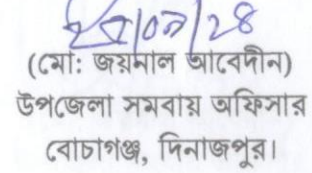 (মো: জয়নাল আবেদীন)
উপজেলা সমবায় অফিসার
বোচাগঞ্জ, দিনাজপুর।